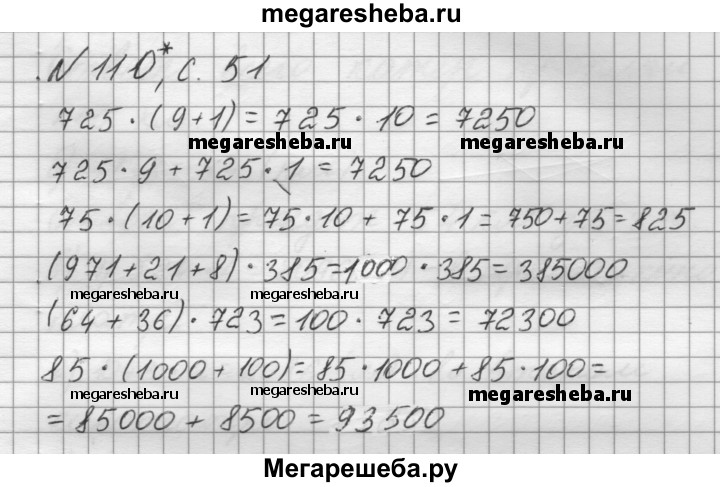 megaresheba.ru
№ 110*, с. 51
725 · (9+1) = 725 · 10 = 7250
megaresheba.ru megaresheba.ru
725 · 9 + 725 · 1 = 7250
75 · (10+1) = 75 · 10 + 75 · 1 = 750+75=825
(971+21+8) · 385=1000 · 385=385000
megaresheba.ru megaresheba.ru
(64 + 36) · 723=100 · 723 = 72300
85 · (1000 + 100)=85 · 1000 +85 · 100=
megaresheba.ru megaresheba.ru megaresheba.ru
= 85000 + 8500 = 93500
Мегарешеба.ру